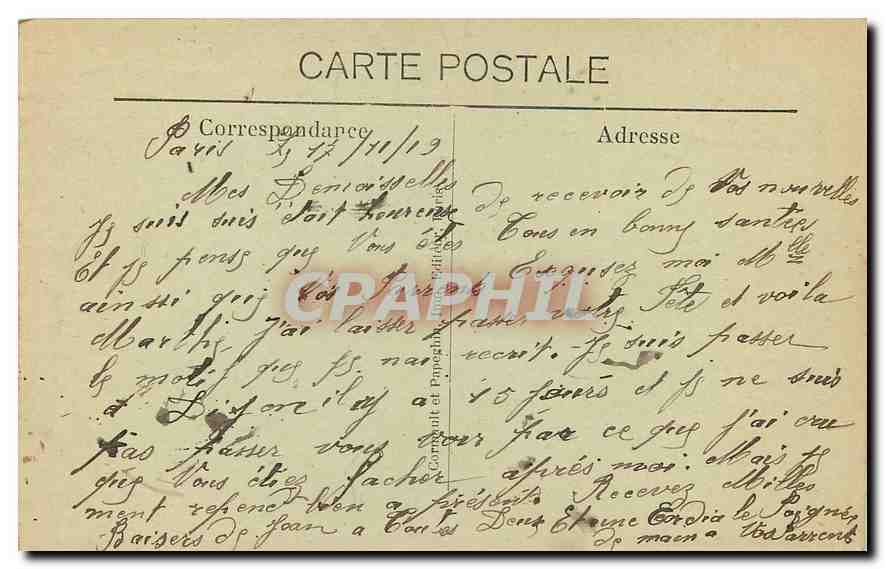 CARTE POSTALE
Correspondance
Adresse
Paris 17/11/19
Mes Demoisselles
Je suis suis était heureuse de recevoir de Vos nouvelles
Et je pense que Vous êtes Tous en bonne santée
ainssi que Vos Parrens Exqusez moi Melle
Marthe J'ai laisser passer votre Fête et voila
le motif que je nai recrit. Je suis passer
a Dijon il y a 15 jours et je ne suis
pas passer vous voir par ce que j'ai cru
que Vous étiez facher après moi. Mais je
ment repend bien a présent. Recevez Milles
Baisers de Jean a Toutes Deux Et une Cordia le Poignée
de main a Vos Parrents
Cornault et Papeghin, Imp. Editeur, Paris
CPAPHIL